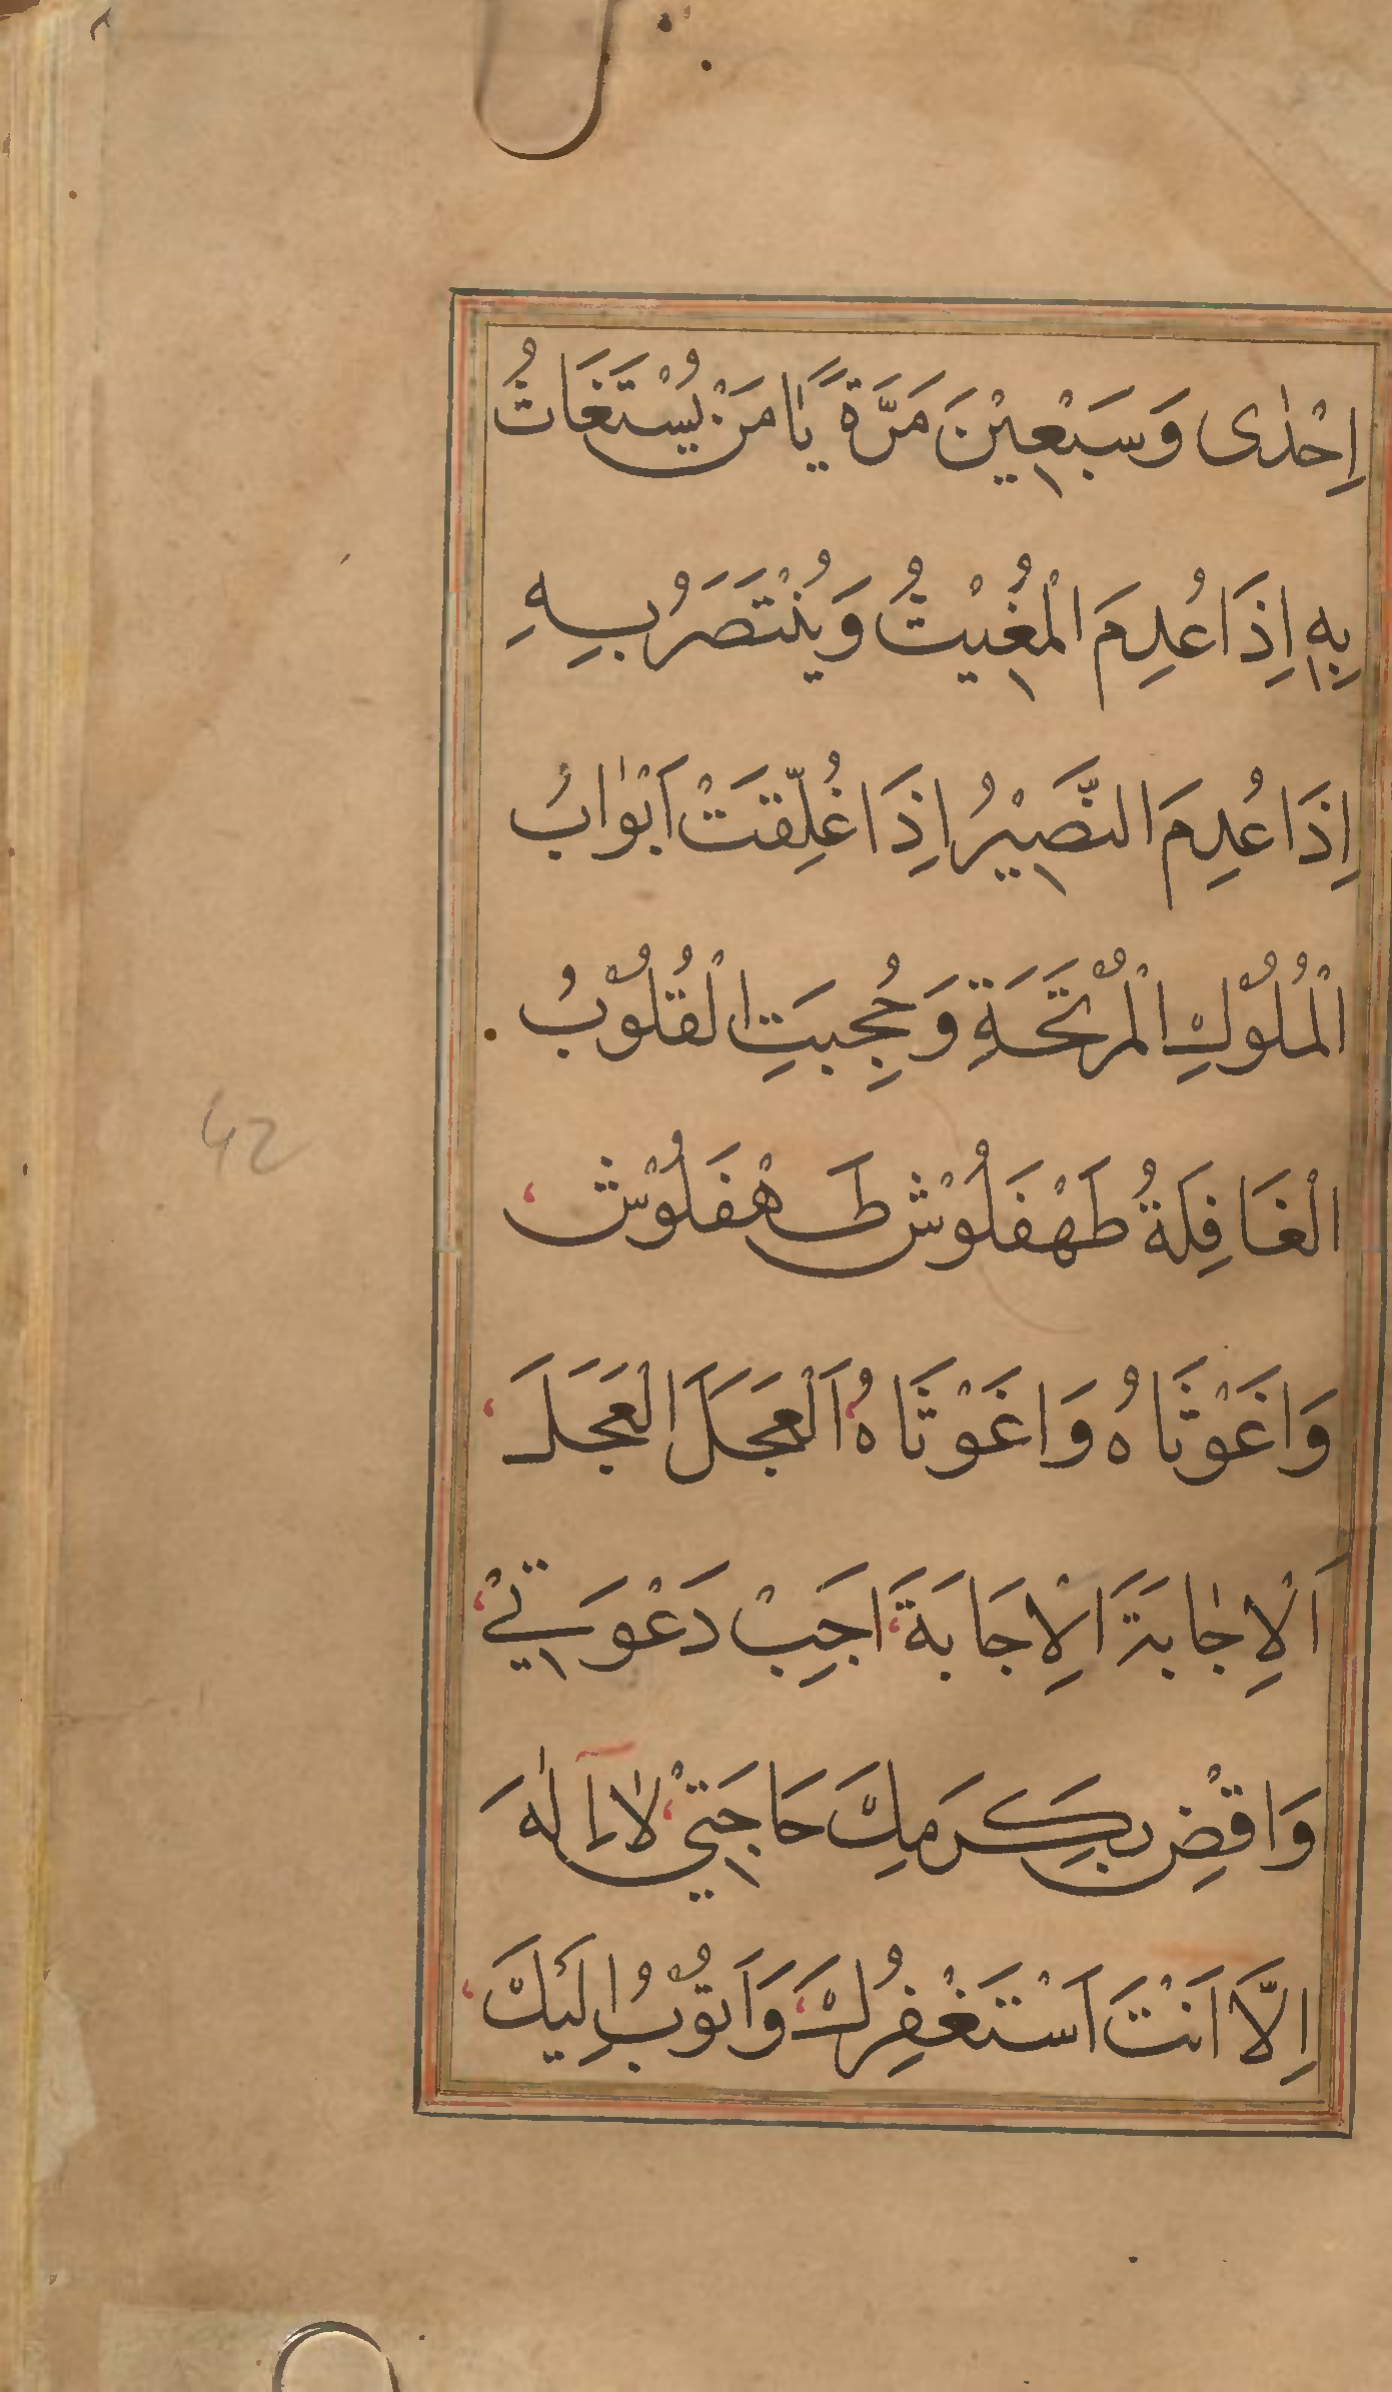 اِحْدٰى وَسَبْعِيْنَ مَرَّةً يَا مَنْ يُسْتَغَاثُ
بِهٖ اِذَا عُدِمَ الْمُغِيْثُ وَيُنْتَصَرُ بِهِ
اِذَا عُدِمَ النَّصِيْرُ اِذَا غُلِّقَتْ اَبْوٰابُ
الْمُلُوْكِ الْمُرْتَجَةِ وَحُجِبَتِ الْقُلُوْبُ
الْغَافِلَةُ طَهْفَلُوْش طَهْفَلُوْش
وَاغَوْثَاهُ وَاغَوْثَاهُ اَلْعَجَلَ الْعَجَلَ
اَلْاِجٰابَةَ اَلْاِجَابَةَ اَجِبْ دَعْوَتِيْ
وَاقْضِ بِكَرَمِكَ حَاجَتِيْ لٰا اِلٰهَ
اِلَّا اَنْتَ اَسْتَغْفِرُكَ وَاَتُوْبُ اِلَيْكَ
42